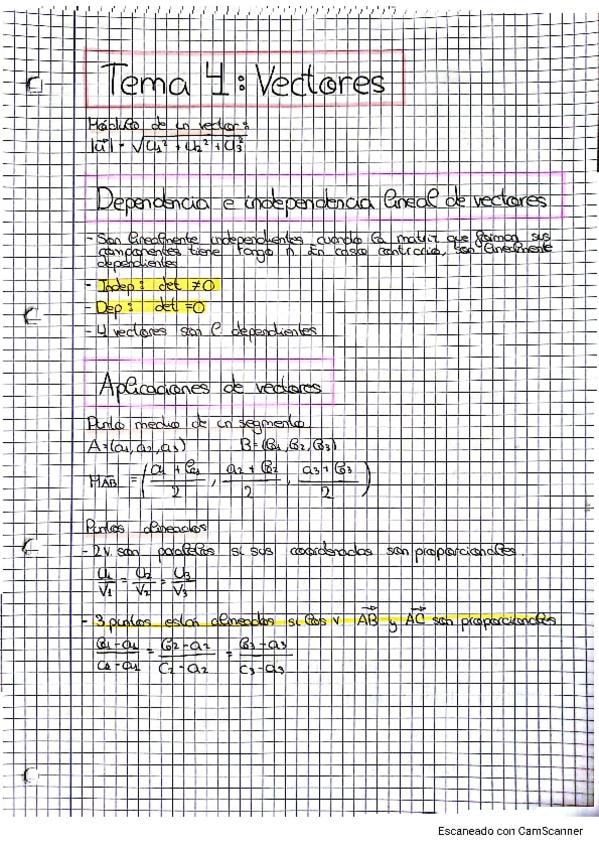 Tema 4: Vectores
Módulo de un vector:
|u⃗| = √u₁² + u₂² + u₃²
Dependencia e independencia lineal de vectores
- Son linealmente independientes cuando la matriz que forman sus
componentes tiene rango n. En caso contrario, son linealmente
dependientes
- Indep: det ≠ 0
- Dep: det = 0
- 4 vectores son l. dependientes
Aplicaciones de vectores
Punto medio de un segmento
A = (a₁, a₂, a₃) B = (b₁, b₂, b₃)
M AB = ( a₁ + b₁ / 2 , a₂ + b₂ / 2 , a₃ + b₃ / 2 )
Puntos alineados
- 2 v. son paralelos si sus coordenadas son proporcionales.
u₁/v₁ = u₂/v₂ = u₃/v₃
- 3 puntos están alineados si los v AB⃗ y AC⃗ son proporcionales
b₁-a₁/c₁-a₁ = b₂-a₂/c₂-a₂ = b₃-a₃/c₃-a₃
Escaneado con CamScanner